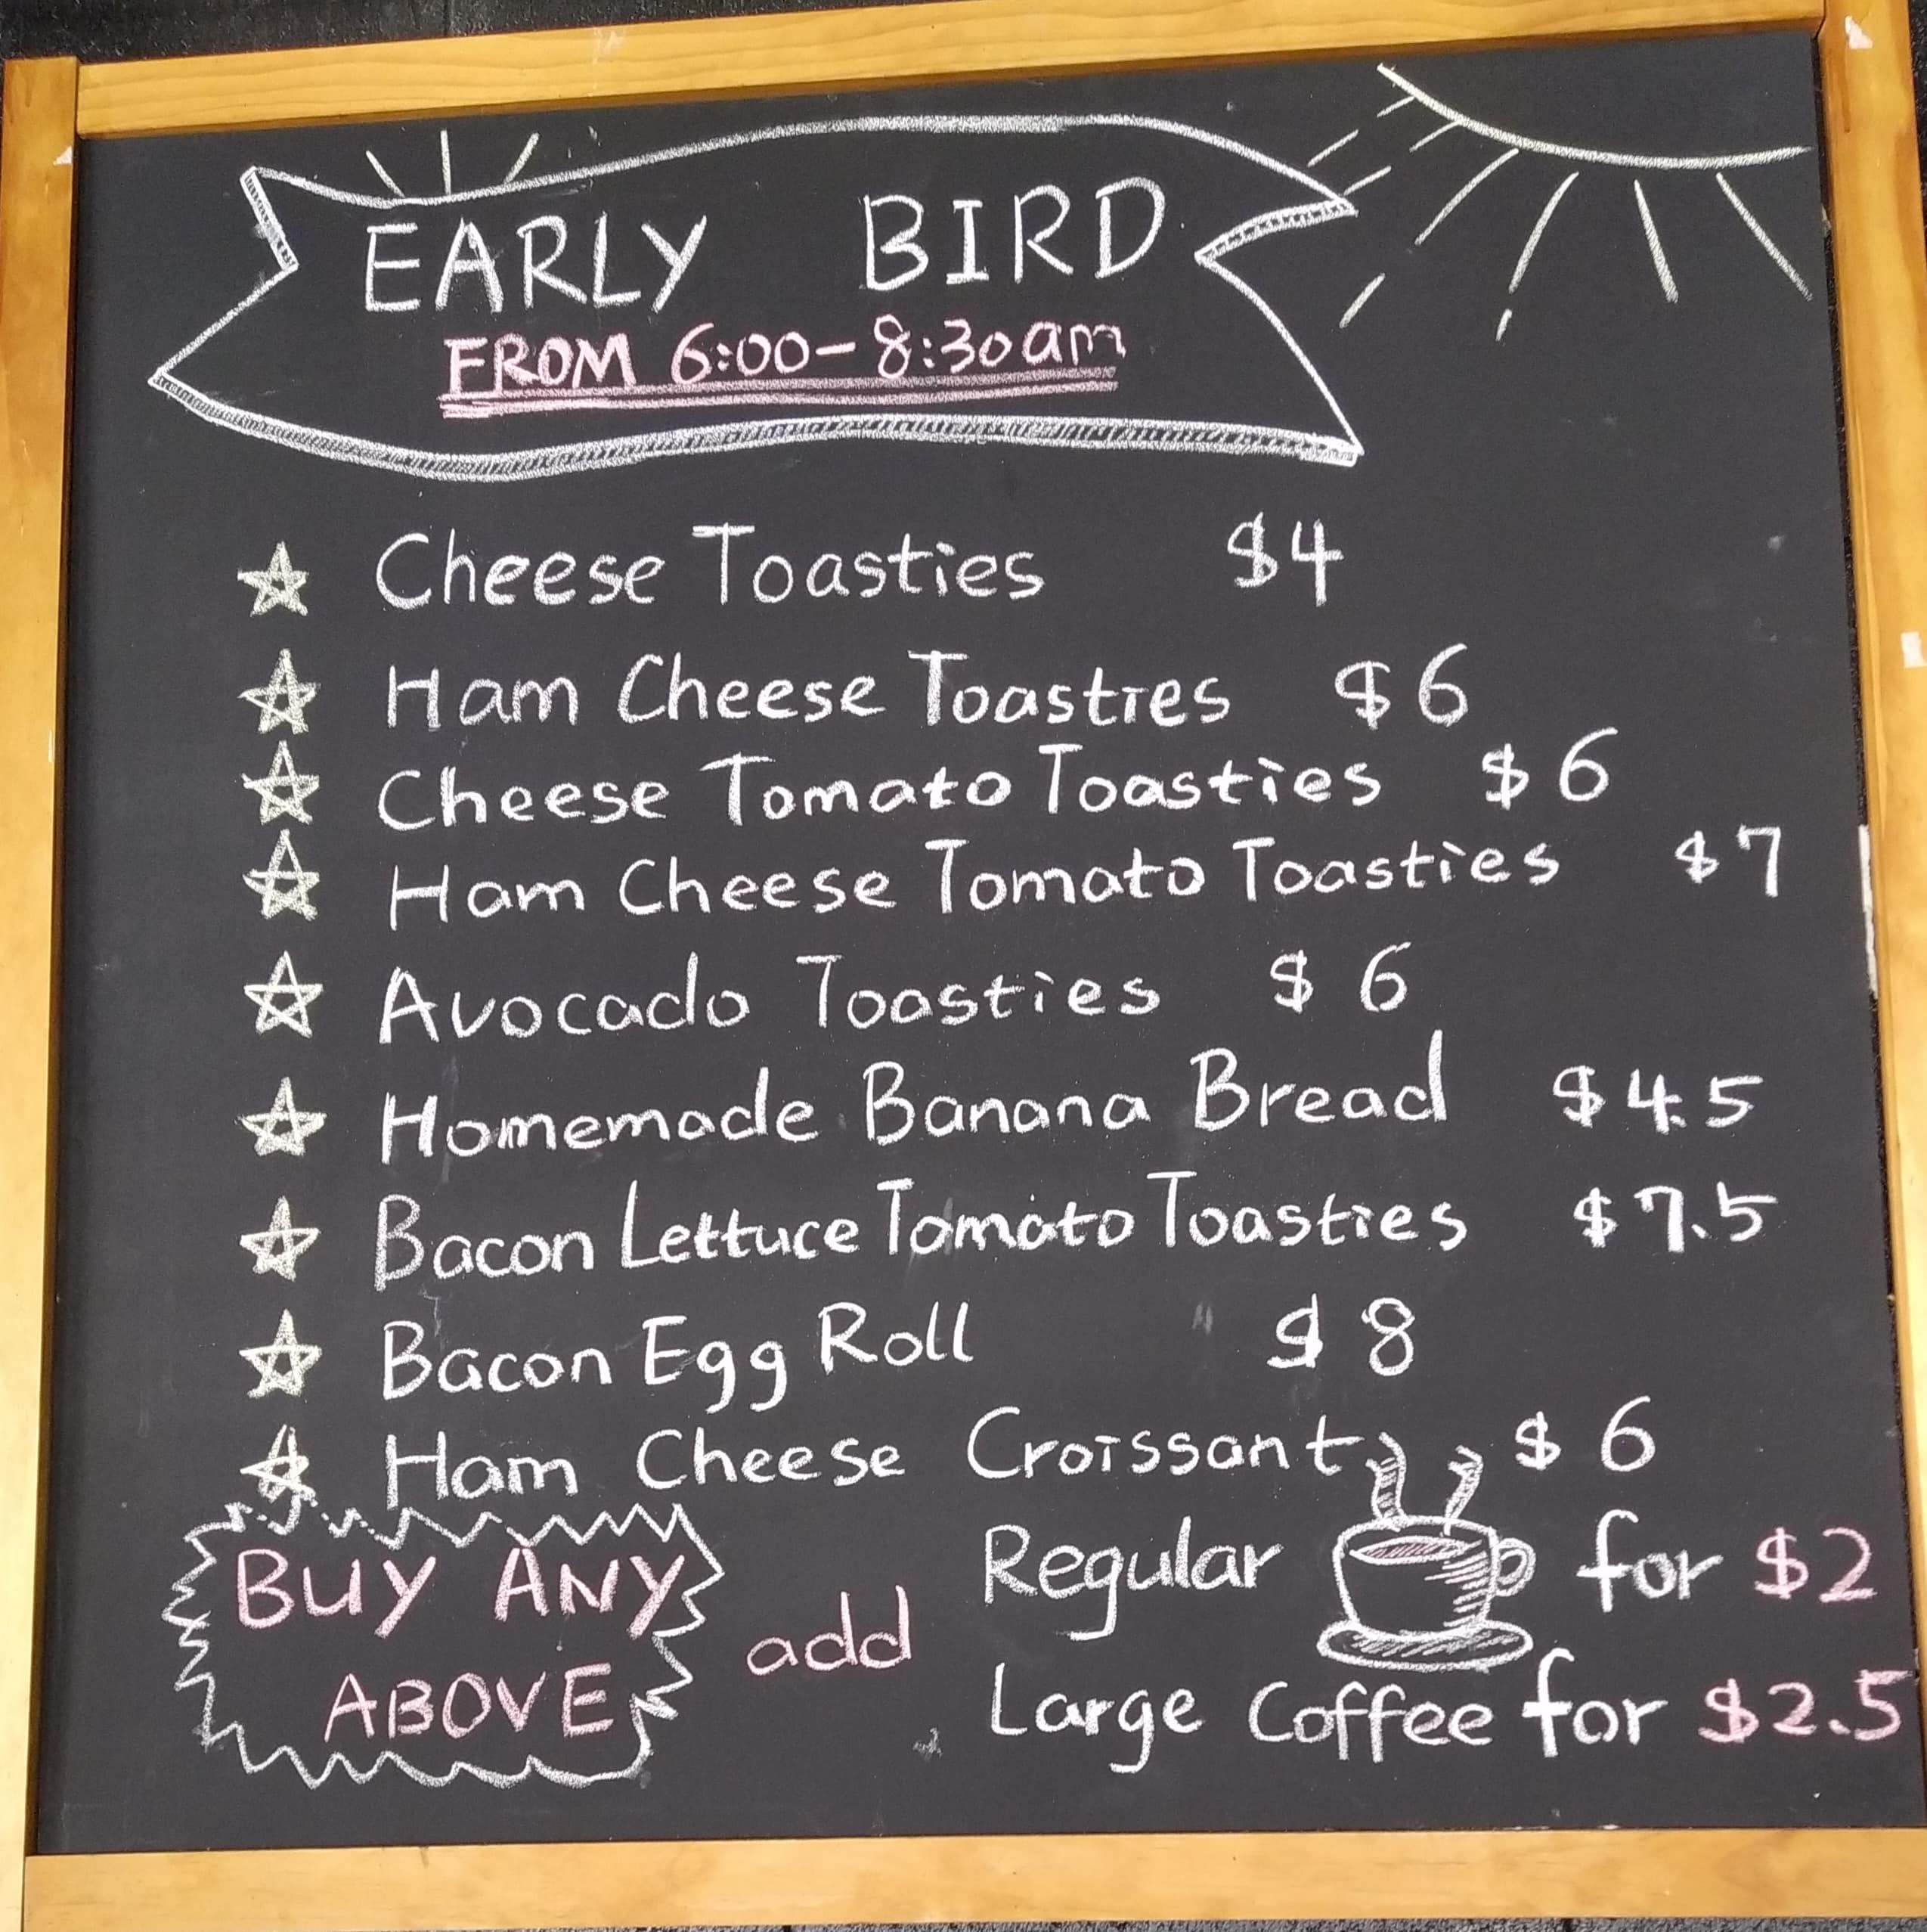 EARLY BIRD
FROM 6:00-8:30am
Cheese Toasties $4
Ham Cheese Toasties $6
Cheese Tomato Toasties $6
Ham Cheese Tomato Toasties $7
Avocado Toasties $6
Homemade Banana Bread $4.5
Bacon Lettuce Tomato Toasties $7.5
Bacon Egg Roll $8
Ham Cheese Croissant $6
BUY ANY
ABOVE
add
Regular for $2
Large Coffee for $2.5